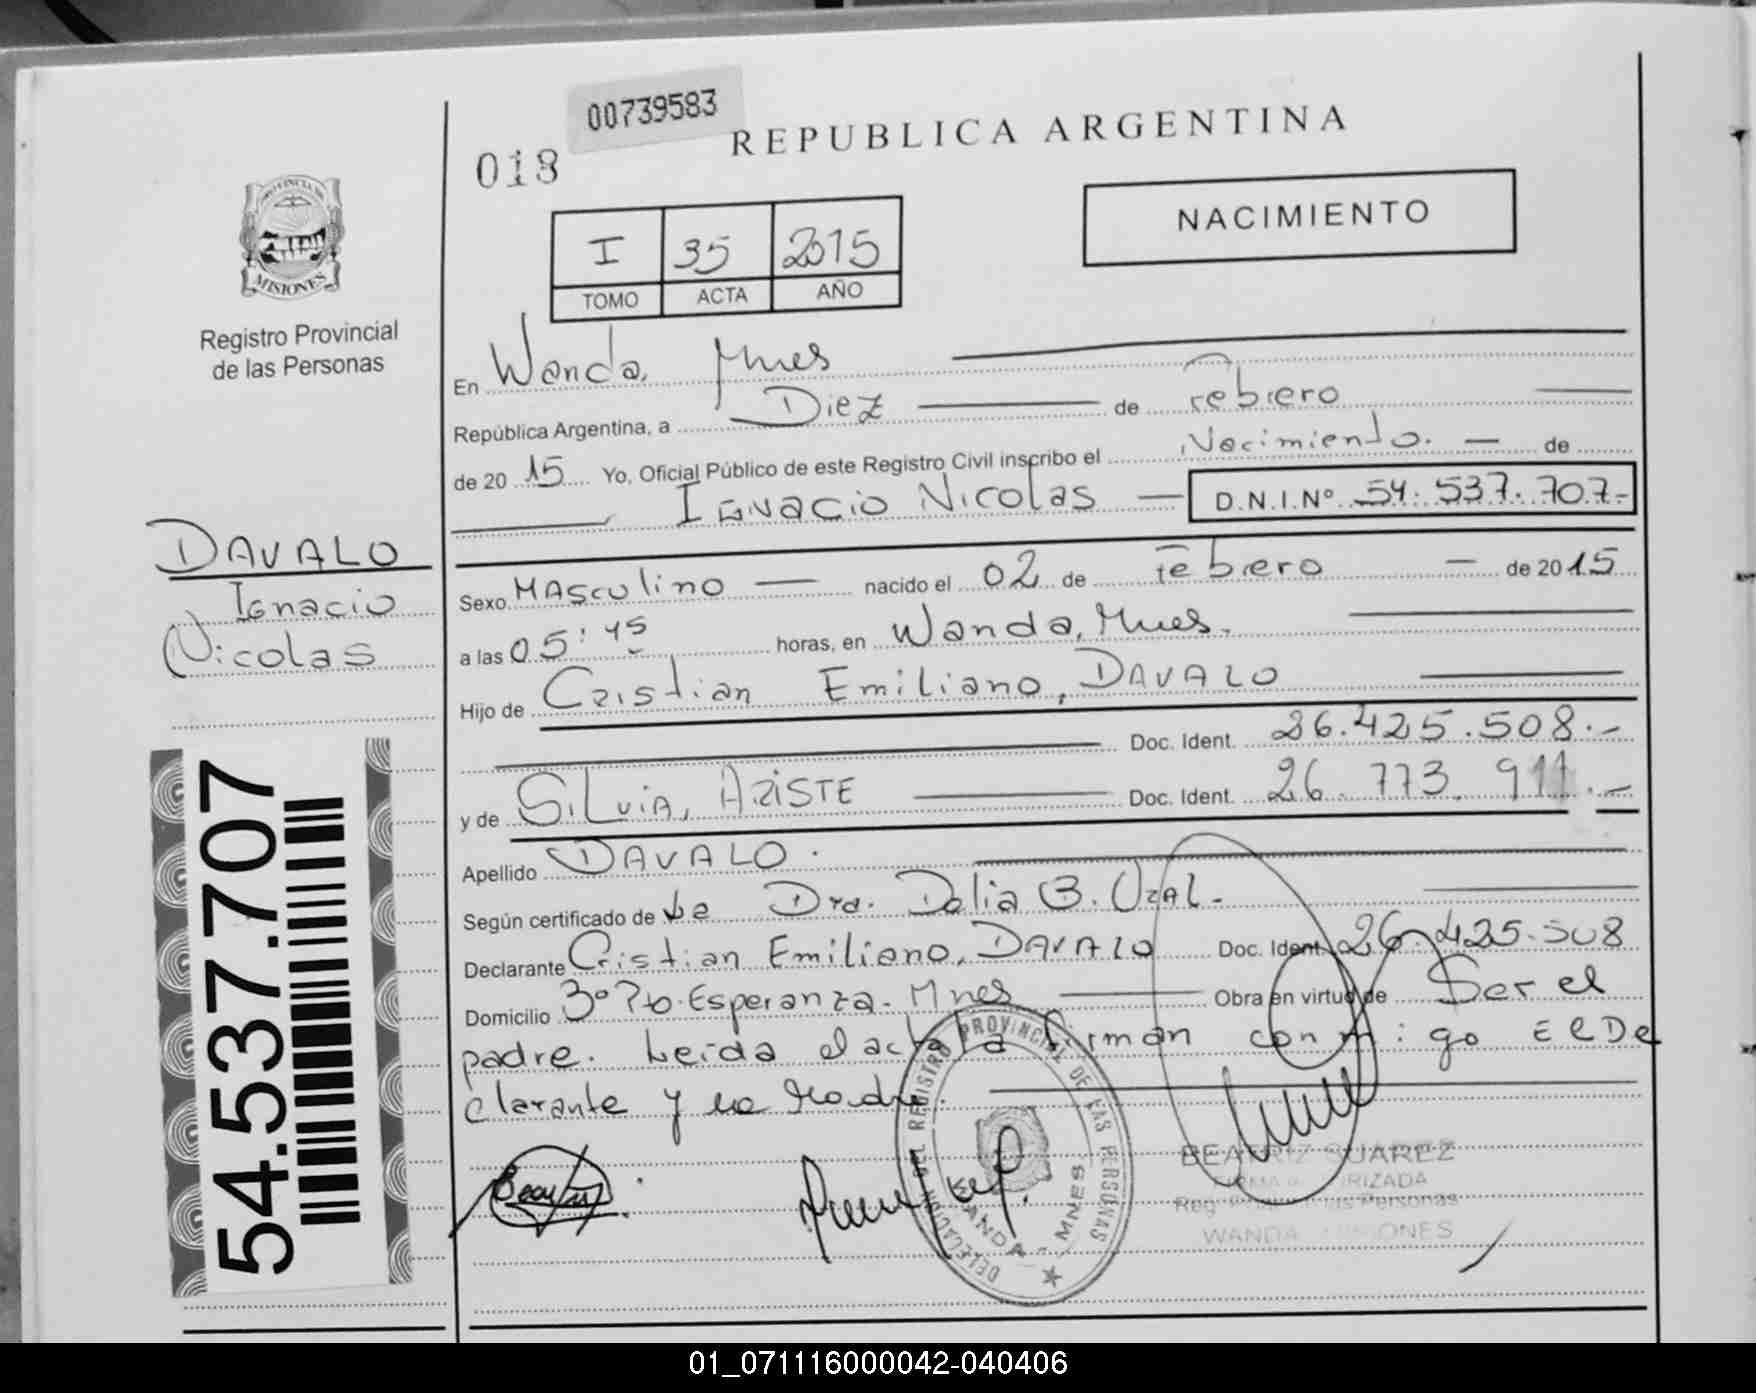 00739583
018
REPUBLICA ARGENTINA
NACIMIENTO
I 35 2015
TOMO ACTA AÑO
PROVINCIA DE
MISIONES
Registro Provincial
de las Personas
En Wanda, Mnes
República Argentina, a Diez de Febrero
de 2015 Yo, Oficial Público de este Registro Civil inscribo el Nacimiento. de
Ignacio Nicolas D.N.I.Nº 54.537.707-
DAVALO
Ignacio
Nicolas
Sexo Masculino nacido el 02 de Febrero de 2015
a las 05:45 horas, en Wanda, Mnes.
Hijo de Cristian Emiliano, DAVALO
Doc. Ident. 26.425.508.-
y de Silvia, ARISTE Doc. Ident. 26.773.911.-
Apellido DAVALO.
Según certificado de la Dra. Delia B. Uzal.
Declarante Cristian Emiliano, DAVALO Doc. Ident. 26.425.508
Domicilio 3º Pto. Esperanza. Mnes Obra en virtud de Ser el
padre. Leida el acta la firman conmigo el De
clarante y la Madre.
54.537.707
DELEGACION DEL REGISTRO PROVINCIAL DE LAS PERSONAS
WANDA - MNES
BEATRIZ SUAREZ
Reg. las Personas
WANDA MISIONES
01_071116000042-040406